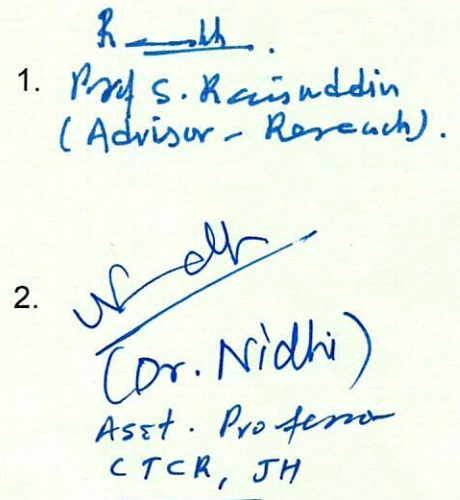 1. Prof S. Raisuddin
(Advisor - Research).
2.
(Dr. Nidhi)
Asst. Professor
CTCR, JH